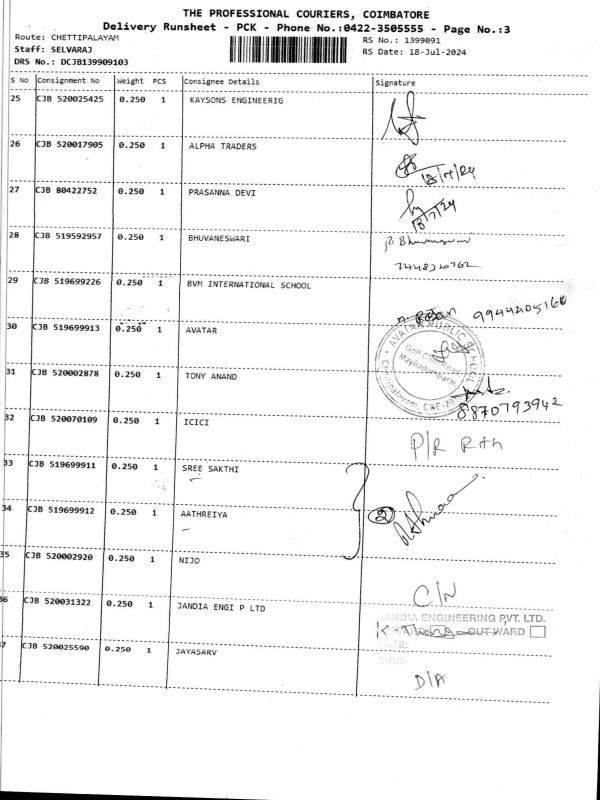 THE PROFESSIONAL COURIERS, COIMBATORE
Delivery Runsheet - PCK - Phone No.:0422-3505555 - Page No.:3
Route: CHETTIPALAYAM
RS No.: 1399091
Staff: SELVARAJ
RS Date: 18-Jul-2024
DRS No.: DCJB139909103
S No Consignment No Weight PCS Consignee Details Signature
25 CJB 520025425 0.250 1 KAYSONS ENGINEERIG
26 CJB 520017905 0.250 1 ALPHA TRADERS
18/7/24
27 CJB 80422752 0.250 1 PRASANNA DEVI
18/7/24
28 CJB 519592957 0.250 1 BHUVANESWARI
29 CJB 519699226 0.250 1 BVM INTERNATIONAL SCHOOL
9944205166
30 CJB 519699913 0.250 1 AVATAR
AVATAR PUBLIC SCHOOL
Golf Club Road
Mayiladumparai
31 CJB 520002878 0.250 1 TONY ANAND
8870793942
32 CJB 520070109 0.250 1 ICICI
P/R
33 CJB 519699911 0.250 1 SREE SAKTHI
34 CJB 519699912 0.250 1 AATHREIYA
2
35 CJB 520002920 0.250 1 NIJO
C/N
36 CJB 520031322 0.250 1 JANDIA ENGI P LTD
JANDIA ENGINEERING PVT. LTD.
OUTWARD
DATE:
SIGN:
37 CJB 520025590 0.250 1 JAYASARV
D/A